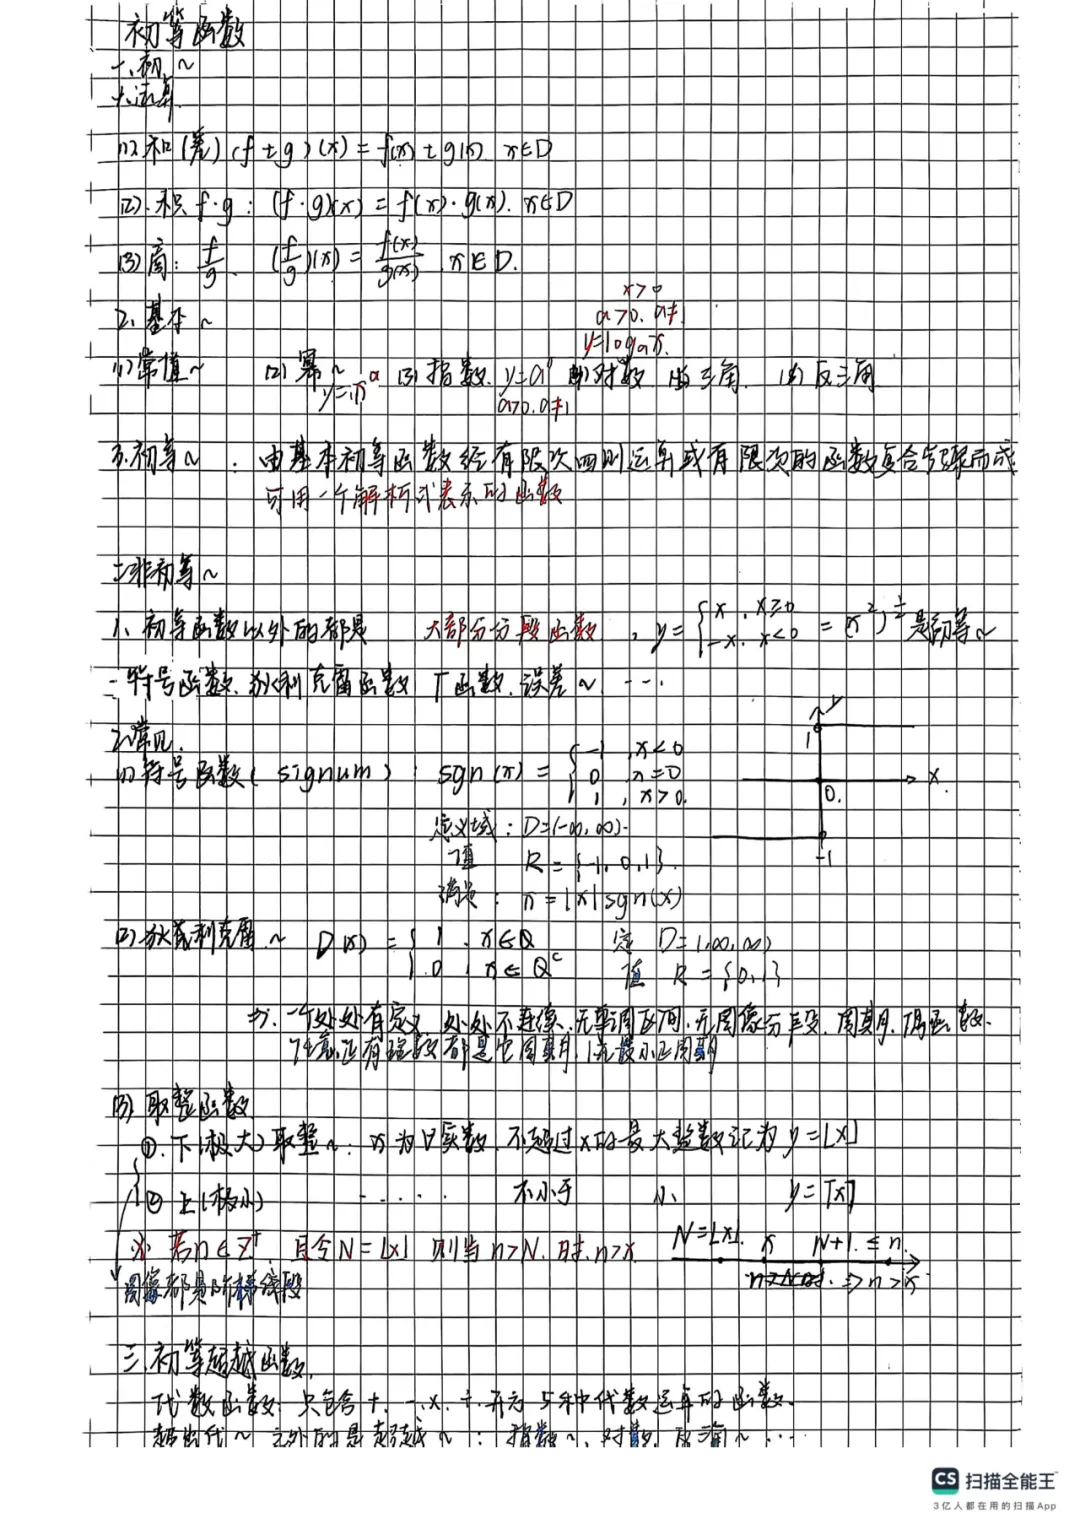 初等函数
一、初~
1.运算
(1).和(差) (f±g)(x)=f(x)±g(x) x∈D
(2).积 f·g: (f·g)(x)=f(x)·g(x). x∈D
(3)商: f/g. (f/g)(x)=f(x)/g(x) x∈D.
2、基本~
x>0
a>0. a≠1
y=logₐx.
(1)常值~ (2)幂~ y=xᵃ (3)指数. y=aˣ (4)对数 (5)三角. (6)反三角
a>0.a≠1
3.初等~: 由基本初等函数经有限次四则运算或有限次的函数复合步骤而成
可用一个解析式表示的函数
二非初等~
1、初等函数以外的都是 大部分分段函数, y={x, x≥0 -x, x<0 =(x²)^½ 是初等~
-符号函数.狄利克雷函数 Γ函数.误差~ ...
2、常见.
(1)符号函数(signum): sgn(x)={-1, x<0 0, x=0 1, x>0.
y 1 0. x -1
定义域: D=(-∞,∞).
值 R={-1,0,1}.
满足: x=|x|sgn(x)
(2)狄义利克雷~ D(x)={1, x∈Q 0, x∈Qᶜ 定 D=(-∞,∞)
值 R={0,1}
⇒. 一个处处有定义.处处不连续.无单调区间.无图像分段.周期.偶函数.
任意正有理数都是它周期,无最小正周期
(3)取整函数
①.下(极大)取整~: x为∀实数,不超过x的最大整数记为 y=⌊x⌋
②上(极小) ...... 不小于 小 y=⌈x⌉
※ 若n∈Z⁺, 且令N=⌊x⌋ 则当n>N.时.n>x N=⌊x⌋. x N+1.≤n.
图像都是阶梯线段 n>N时.⇒n>x
三.初等超越函数.
代数函数:只包含+.-.×.÷.开方 5种代数运算的函数.
超出代~之外的是超越~: 指数~、对数,反三角~...
CS 扫描全能王
3亿人都在用的扫描App